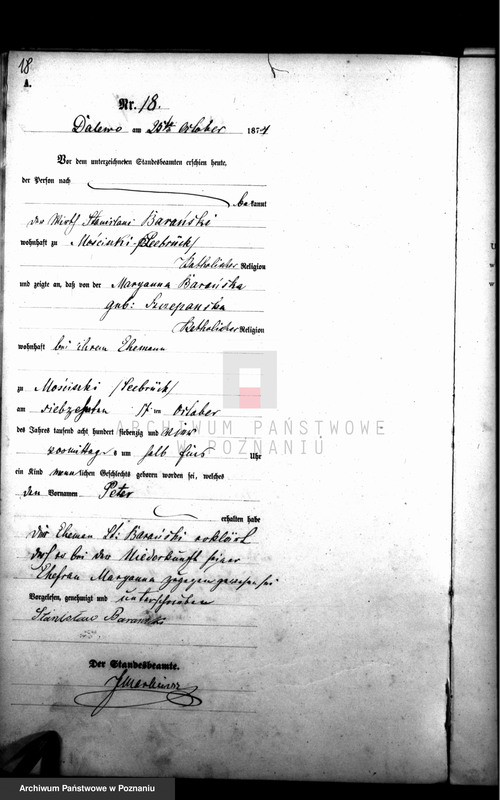 18
A.
Nr. 18.
Dalewo am 25ten October 1874
Vor dem unterzeichneten Standesbeamten erschien heute,
der Person nach
bekannt
der Wirth Stanislaus Barański
wohnhaft zu Mościszki (Seebrück)
Katholischer Religion
und zeigte an, daß von der Maryanna Barańska
geb: Szczepańska
Katholischer Religion
wohnhaft bei ihrem Ehemann
zu Mościszki (Seebrück)
am siebzehnten 17ten October
des Jahres tausend acht hundert siebenzig und vier
vormittags um halb fünf Uhr
ein Kind männlichen Geschlechts geboren worden sei, welches
den Vornamen Peter
erhalten habe
Der Eheman St: Barański erklärt
daß er bei der Niederkunft seiner
Ehefrau Maryanna zugegen gewesen sei
Vorgelesen, genehmigt und unterschrieben
Stanisław Barański
Der Standesbeamte.
ARCHIWUM PAŃSTWOWE
W POZNANIU
Archiwum Państwowe w Poznaniu